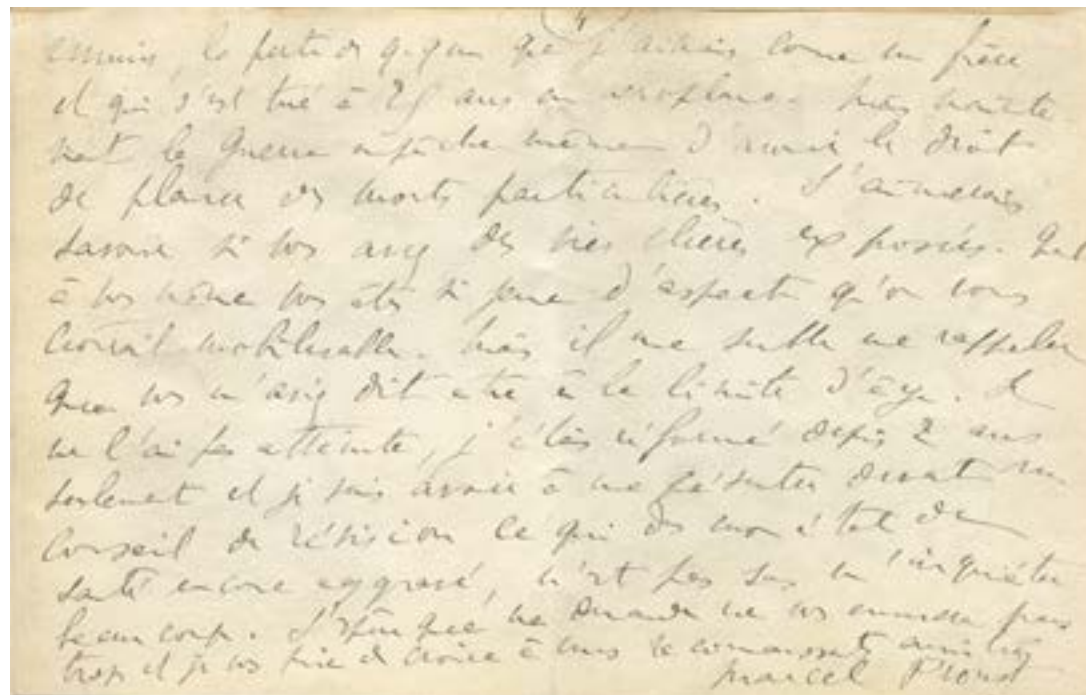 4
ennuis, la perte de qq'un que j'aimais come un frère
et qui s'est tué à 25 ans en aéroplane. Mais mainte
nant la Guerre empêche même d'avoir le droit
de pleurer des morts particulières. J'aimerais
savoir si vos avez des vies chères exposées. Quant
à vos même vos êtes si jeune d'aspect qu'on vous
croirait mobilisable. Mais il me semble me rappeler
que vos m'aviez dit être à la limite d'âge. Je
ne l'ai pas atteinte, j'étais réformé depuis 2 ans
seulement et je vais avoir à me présenter devant un
Conseil de révision ce qui ds mon état de
santé encore aggravé, n'est pas sans m'inquiéter
beaucoup. J'espère que ma demande ne vos ennuiera pas
trop et je vos prie de croire à mes reconnaissants
Marcel Proust